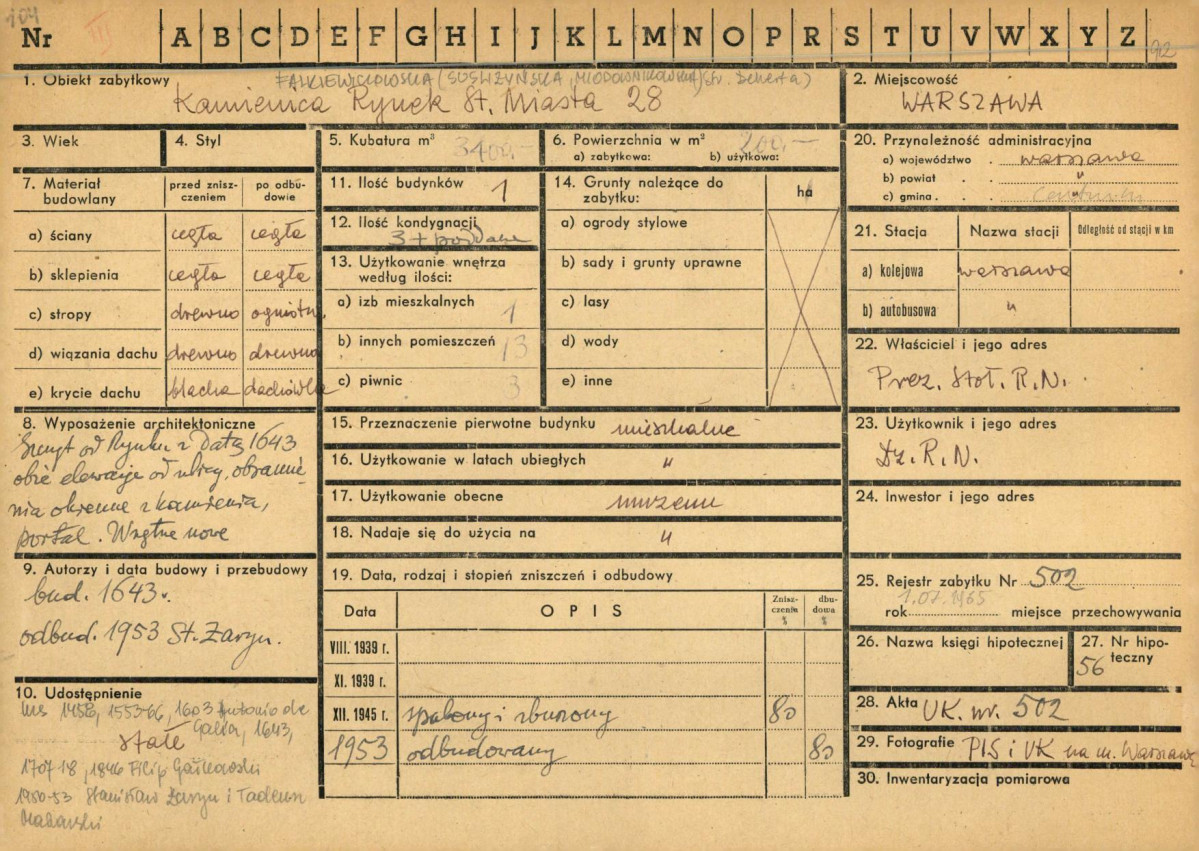 104
Nr III A B C D E F G H I J K L M N O P R S T U V W X Y Z
92
1. Obiekt zabytkowy FALKIEWICZOWSKA (SUSLIŻYŃSKA, MIODOWNIKOWSKA) (str. Dekerta)
Kamienica Rynek St. Miasta 28
2. Miejscowość
WARSZAWA
3. Wiek
4. Styl
5. Kubatura m³ 3400.-
6. Powierzchnia w m² 200.-
a) zabytkowa: b) użytkowa:
7. Materiał budowlany
przed znisz-
czeniem
po odbu-
dowie
a) ściany cegła cegła
b) sklepienia cegła cegła
c) stropy drewno ogniotrw.
d) wiązania dachu drewno drewno
e) krycie dachu blacha dachówka
8. Wyposażenie architektoniczne
Szczyt od Rynku z datą 1643
obie elewacje od ulicy, obramie-
nia okienne z kamienia,
portal. Wnętrze nowe
9. Autorzy i data budowy i przebudowy
bud. 1643 r.
odbud. 1953 St. Żaryn.
10. Udostępnienie
1458, 1553-66, 1603 Antonio de
Galia, 1643,
stałe
1707-18, 1846 Filip
1950-53 Stanisław Żaryn i Tadeusz
Makarski
11. Ilość budynków 1
12. Ilość kondygnacji
3 + poddasze
13. Użytkowanie wnętrza
według ilości:
a) izb mieszkalnych 1
b) innych pomieszczeń 13
c) piwnic 3
14. Grunty należące do
zabytku: ha
a) ogrody stylowe
b) sady i grunty uprawne
c) lasy
d) wody
e) inne
15. Przeznaczenie pierwotne budynku mieszkalne
16. Użytkowanie w latach ubiegłych "
17. Użytkowanie obecne muzeum
18. Nadaje się do użycia na "
19. Data, rodzaj i stopień zniszczeń i odbudowy
Data OPIS
Znisz-
czenia
%
dbu-
dowa
%
VIII. 1939 r.
XI. 1939 r.
XII. 1945 r. spalony i zburzony 80
1953 odbudowany 80
20. Przynależność administracyjna
a) województwo . warszawa
b) powiat . . "
c) gmina . . "
21. Stacja Nazwa stacji Odległość od stacji w km
a) kolejowa warszawa
b) autobusowa "
22. Właściciel i jego adres
Prez. Stoł. R.N.
23. Użytkownik i jego adres
Dz. R. N.
24. Inwestor i jego adres
25. Rejestr zabytku Nr 502
1.07.1965
rok miejsce przechowywania
26. Nazwa księgi hipotecznej
27. Nr hipo-
teczny
56
28. Akta UK. nr. 502
29. Fotografie PIS i UK na m. Warszawę
30. Inwentaryzacja pomiarowa